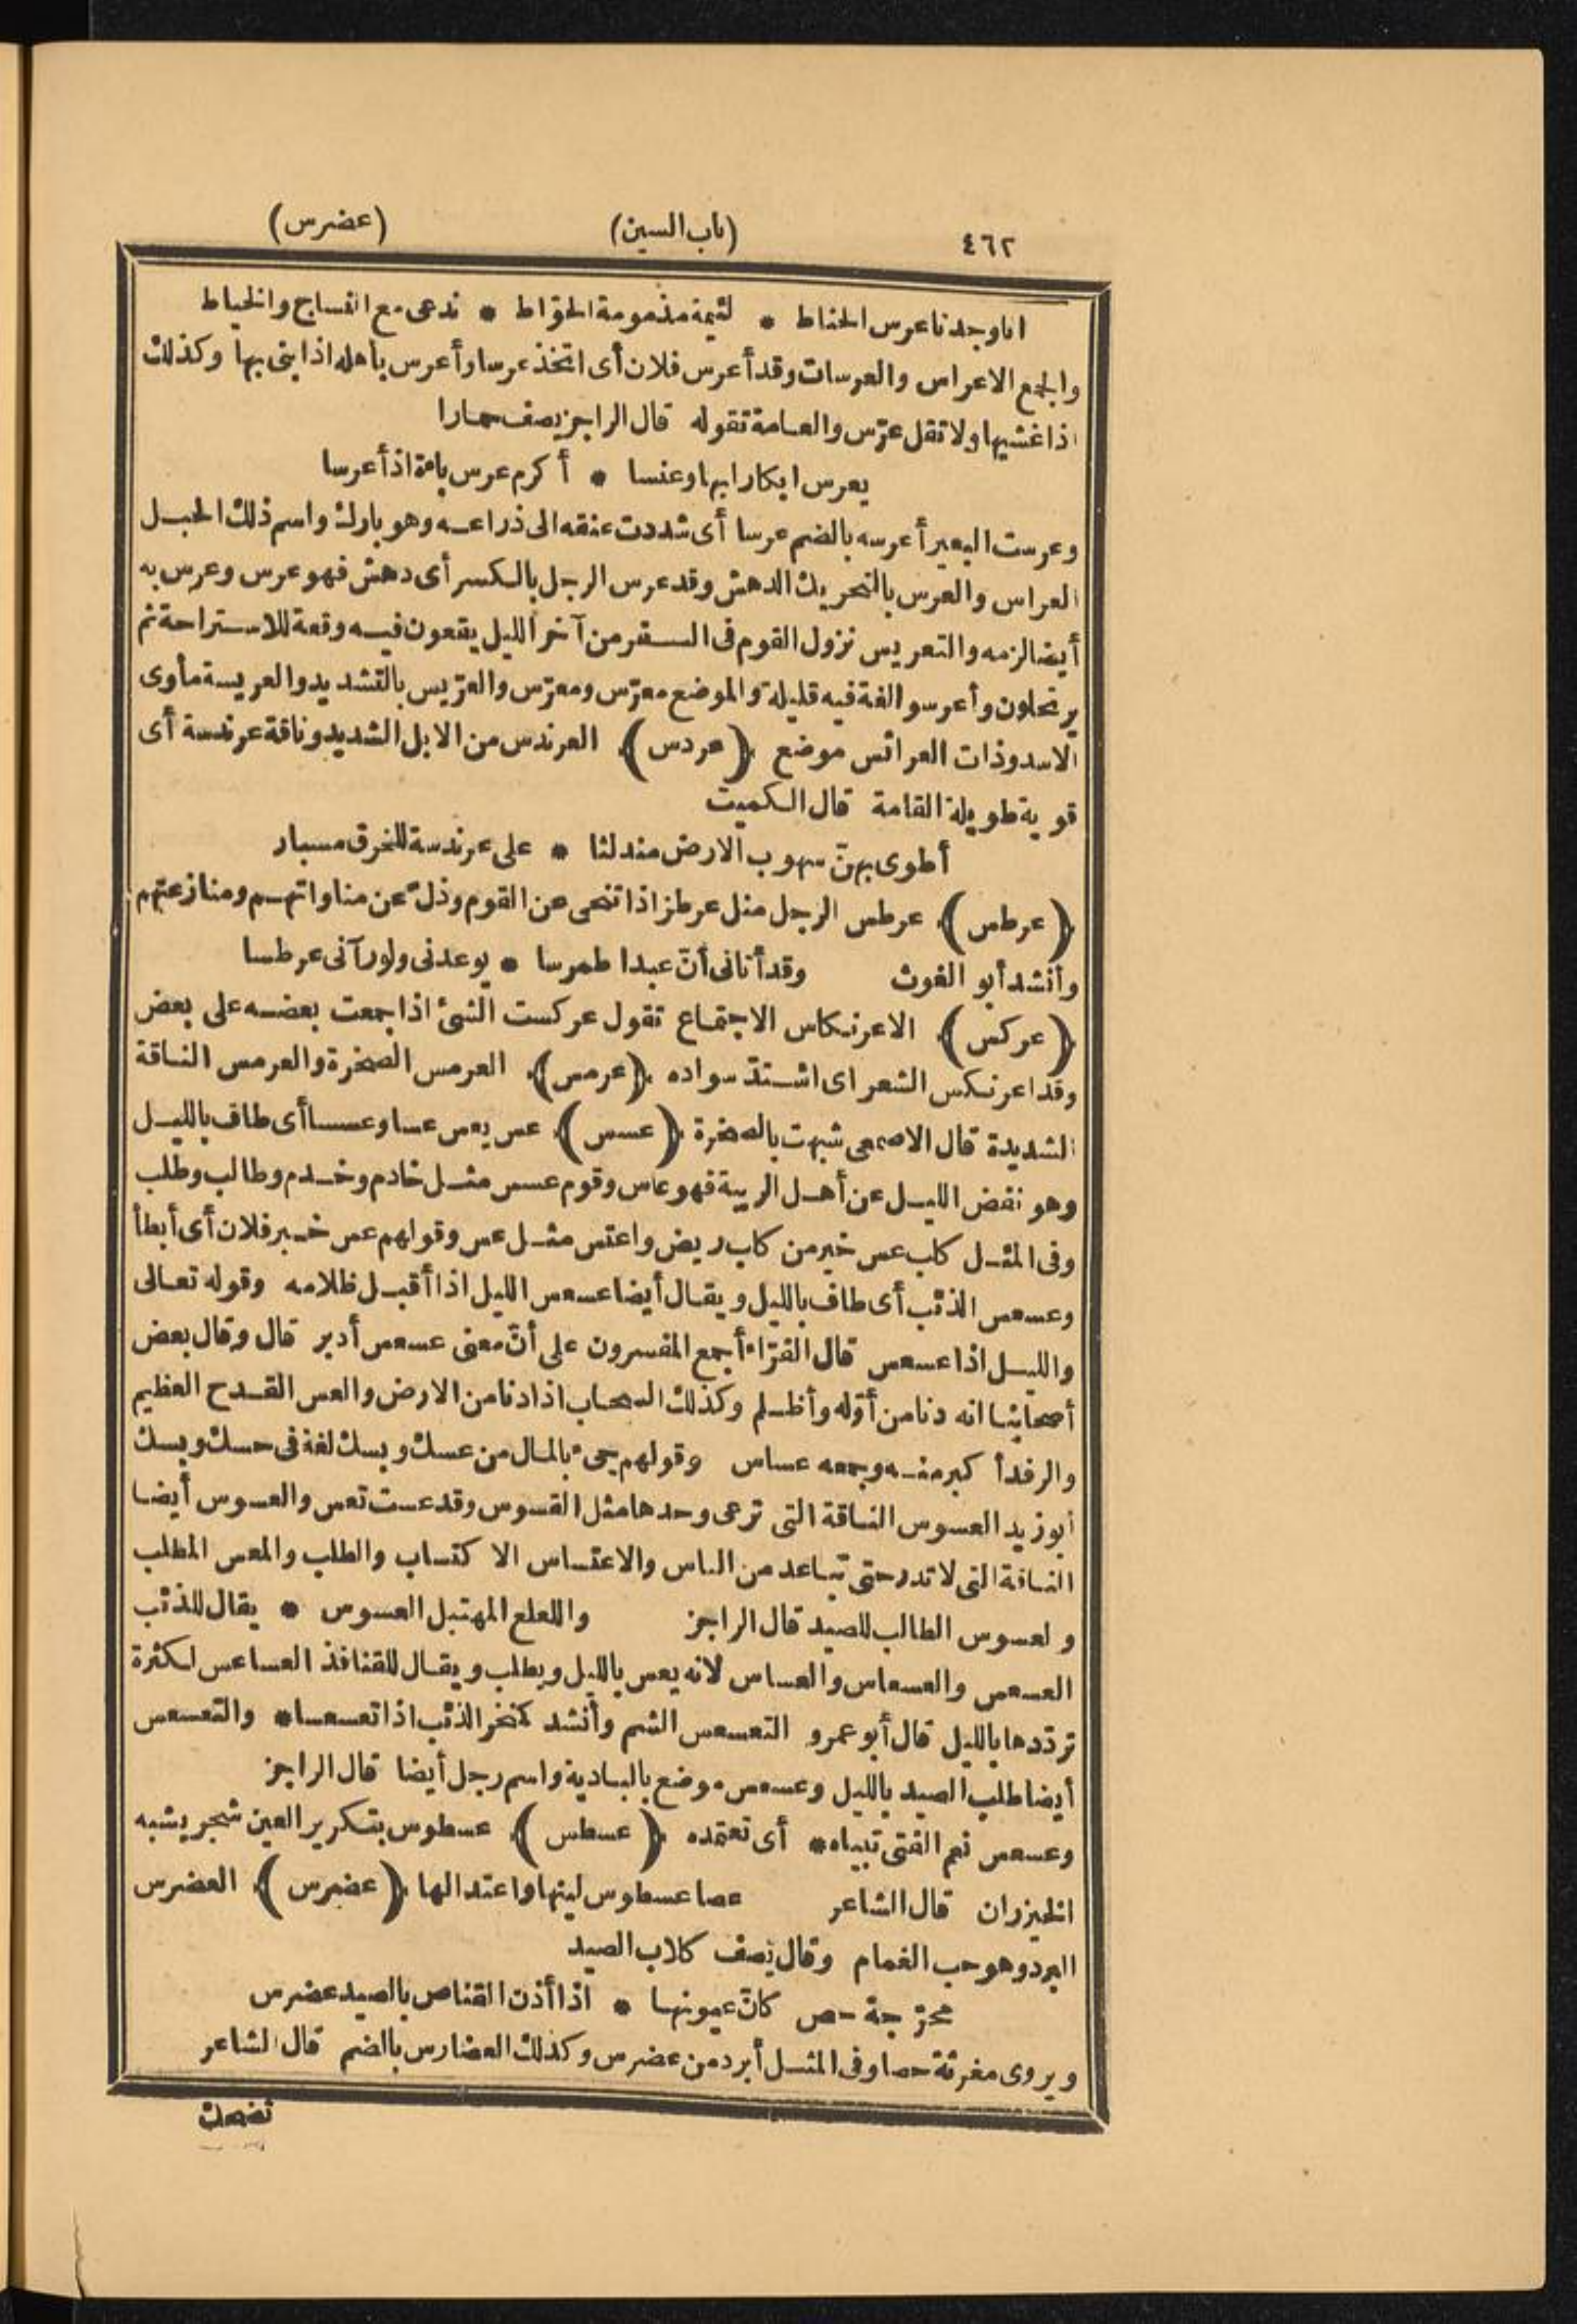 ٤٦٢ (باب السين) (عضرس)
انا وجدنا عرس الحناط * لئيمة مذمومة الحوّاط * ندعى مع النساج والخياط
والجمع الاعراس والعرسات وقد أعرس فلان أى اتخذ عرسا وأعرس باهله اذا بنى بها وكذلك
اذا غشيها ولا تقل عرّس والعامة تقوله قال الراجز يصف حمارا
يعرس ابكارا بها وعنسا * أكرم عرس باءة اذ أعرسا
وعرست البعير أعرسه بالضم عرسا أى شددت عنقه الى ذراعه وهو بارك واسم ذلك الحبل
العراس والعرس بالتحريك الدهش وقد عرس الرجل بالكسر أى دهش فهو عرس وعرس به
أيضا لزمه والتعريس نزول القوم فى السفر من آخر الليل يقعون فيه وقعة للاستراحة ثم
يرتحلون وأعرسوا لغة فيه قليلة والموضع معرّس ومعرّس والعرّيس بالتشديد والعريسة مأوى
الاسد وذات العرائس موضع ﴿عردس﴾ العرندس من الابل الشديد وناقة عرندسة أى
قوية طويلة القامة قال الكميت
أطوى بهنّ سهوب الارض مندلثا * على عرندسة للخرق مسبار
﴿عرطس﴾ عرطس الرجل مثل عرطز اذا تنحى عن القوم وذلّ عن مناواتهم ومنازعتهم
وأنشد أبو الغوث وقد أتانى أنّ عبدا طمرسا * يوعدنى ولو رآنى عرطسا
﴿عركس﴾ الاعرنكاس الاجتماع تقول عركست الشئ اذا جمعت بعضه على بعض
وقد اعرنكس الشعر اى اشتدّ سواده ﴿عرمس﴾ العرمس الصخرة والعرمس الناقة
الشديدة قال الاصمعى شبهت بالصخرة ﴿عسس﴾ عس يعس عسا وعسسا أى طاف بالليل
وهو نفض الليل عن أهل الريبة فهو عاس وقوم عسس مثل خادم وخدم وطالب وطلب
وفى المثل كلب عس خير من كلب ربض واعتس مثل عس وقولهم عس خبر فلان أى أبطأ
وعسعس الذئب أى طاف بالليل ويقال أيضا عسعس الليل اذا أقبل ظلامه وقوله تعالى
والليل اذا عسعس قال الفرّاء أجمع المفسرون على أنّ معنى عسعس أدبر قال وقال بعض
أصحابنا انه دنا من أوّله وأظلم وكذلك السحاب اذا دنا من الارض والعس القدح العظيم
والرفد أكبر منه وجمعه عساس وقولهم جىء بالمال من عسك وبسك لغة فى حسك وبسك
أبو زيد العسوس الناقة التى ترعى وحدها مثل القسوس وقد عست تعس والعسوس أيضا
الناقة التى لا تدر حتى تباعد من الناس والاعتساس الاكتساب والطلب والمعس المطلب
والعسوس الطالب للصيد قال الراجز واللعلع المهتبل العسوس * يقال للذئب
العسعس والعسعاس والعساس لانه يعس بالليل ويطلب ويقال للقنافذ العساعس لكثرة
تردّدها بالليل قال أبو عمرو التعسعس الشم وأنشد كمنخر الذئب اذا تعسعسا* والتعسعس
أيضا طلب الصيد بالليل وعسعس موضع بالبادية واسم رجل أيضا قال الراجز
وعسعس نعم الفتى تبياه* أى تعتمده ﴿عسطس﴾ عسطوس بتكرير العين شجر يشبه
الخيزران قال الشاعر عصا عسطوس لينها واعتدالها ﴿عضرس﴾ العضرس
البرد وهو حب الغمام وقال يصف كلاب الصيد
محرّجة حص كانّ عيونها * اذا أذن القناص بالصيد عضرس
ويروى مغرثة حصا وفى المثل أبرد من عضرس وكذلك العضارس بالضم قال الشاعر
تضحك